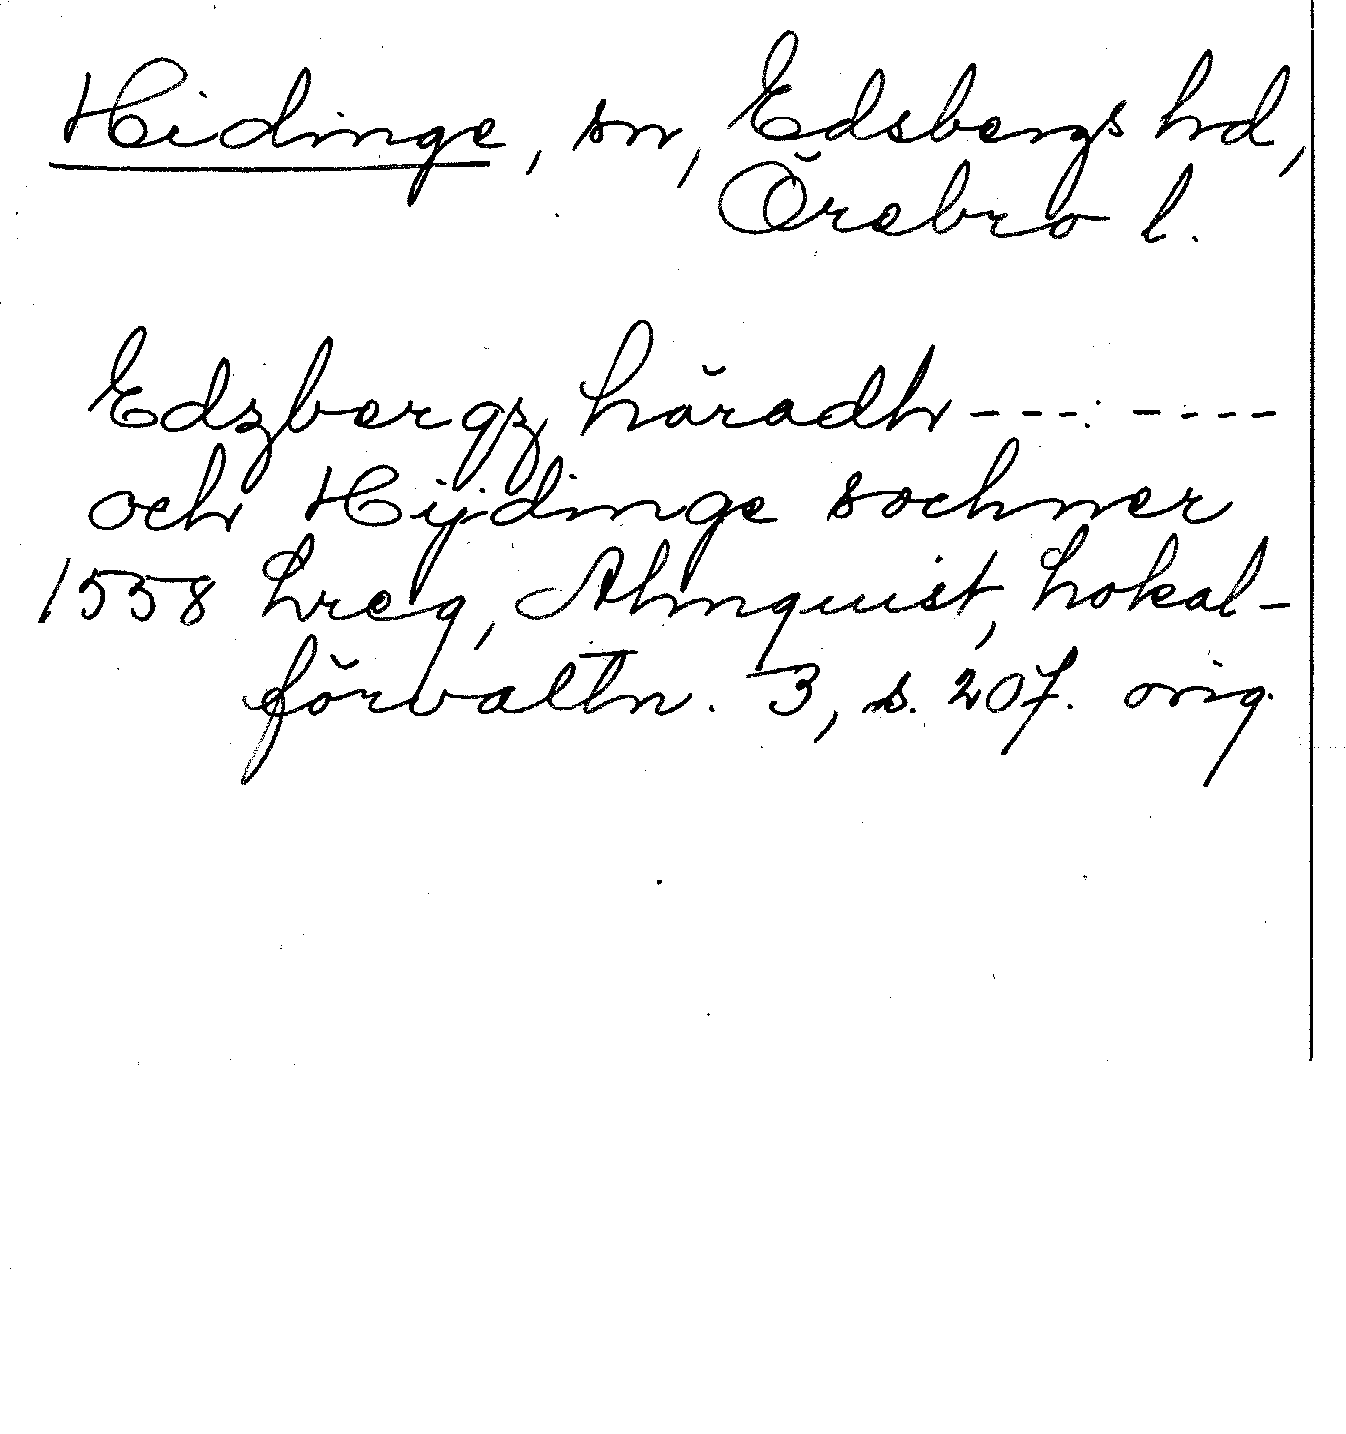 Hidinge, sn, Edsbergs hd,
Örebro l.
Edzbergz häradh --- : ----
och Hijdinge sochner
1558 Lreg, Almquist, Lokal-
förvaltn. 3, s. 207. orig.